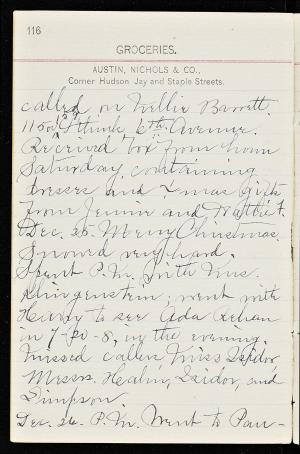 116
GROCERIES.
AUSTIN, NICHOLS & CO.,
Corner Hudson Jay and Staple Streets.
called on Nellie Barrett.
115 I think 6th. Avenue.
Received box from home
Saturday containing
dresses and Xmas gifts
from Jennie and Hattie
Dec. 25. Merry Christmas.
Snowed very hard.
Spent P.M. with Mrs.
Klingenstein; went with
Henry to see Ada Rehan
in 7-20-8, in the evening.
Missed callers Miss Isidor,
Messrs. Healin, Isidor, and
Simpson.
Dec. 26. P.M. Went to Pau-